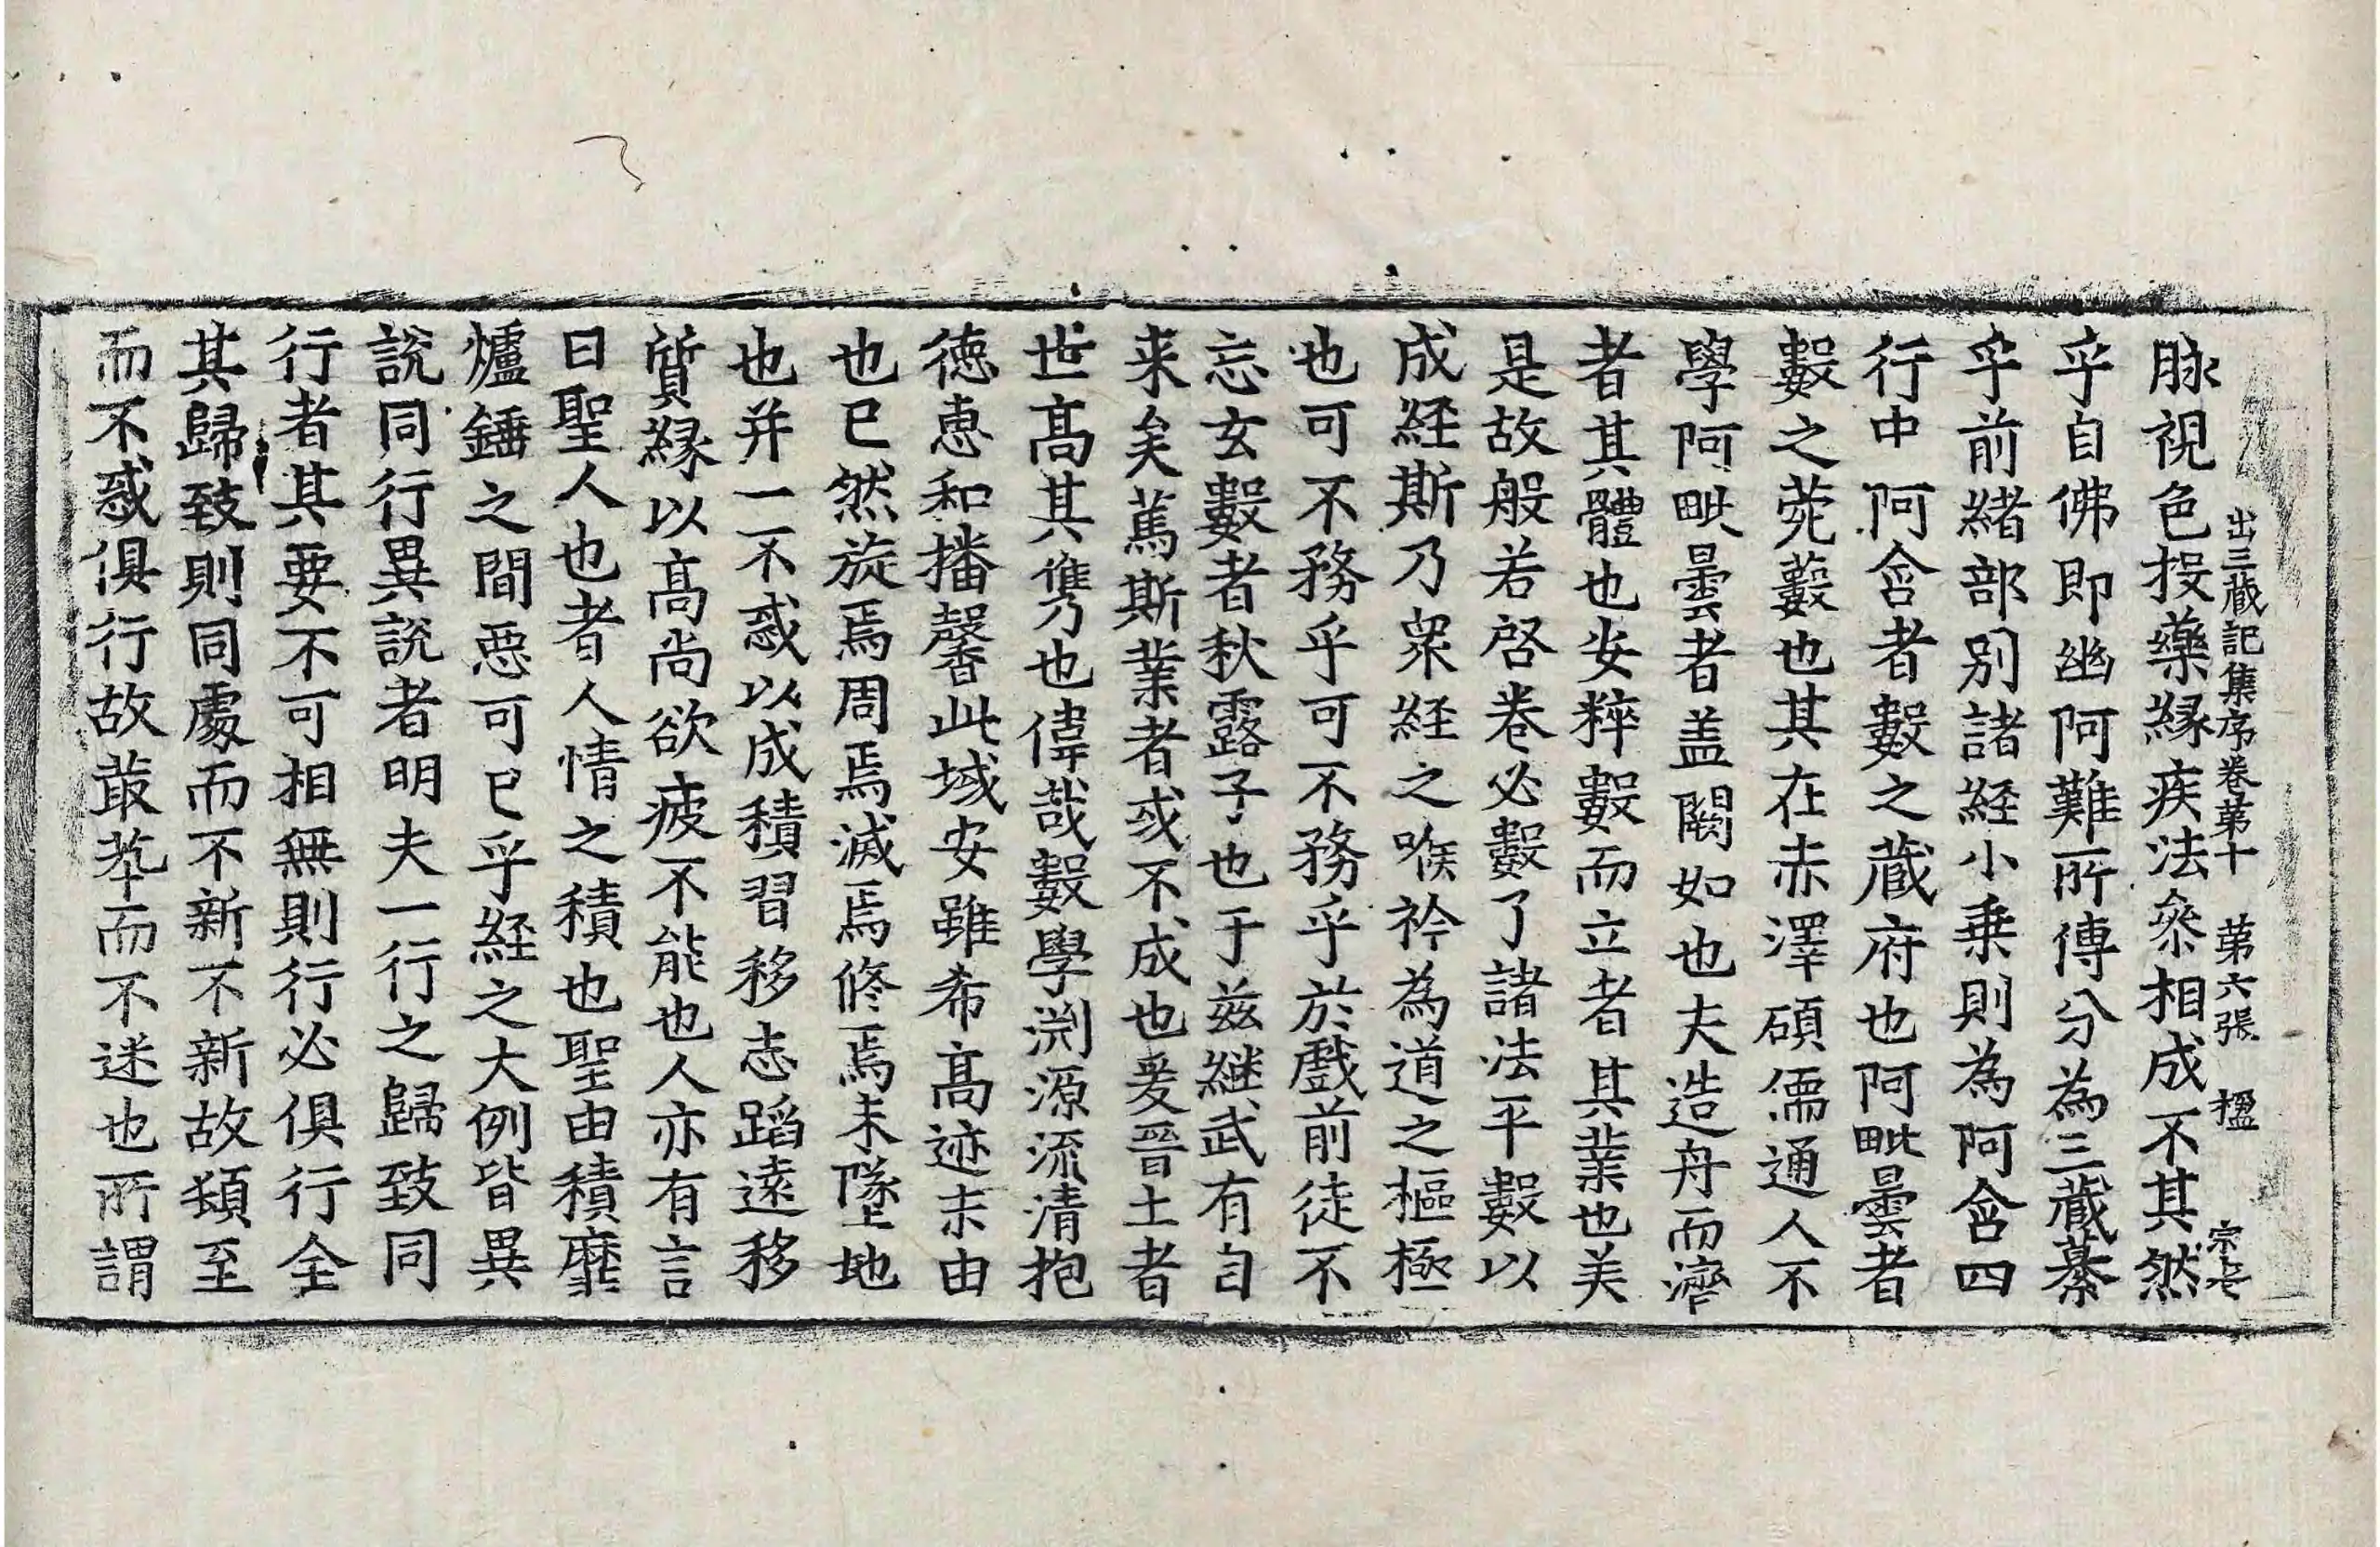 出三藏記集序卷第十 第六張 楹 宗七
脉視色投藥緣疾法叅相成不其然
乎自佛即幽阿難所傳分為三藏纂
乎前緒部別諸経小乗則為阿含四
行中阿含者數之蔵府也阿毗曇者
數之菀藪也其在赤澤碩儒通人不
學阿毗曇者盖闕如也夫造舟而濟
者其體也安粹數而立者其業也美
是故般若啓卷必數了諸法平數以
成経斯乃衆経之喉衿為道之樞極
也可不務乎可不務乎於戲前徒不
忘玄數者秋露子也于茲継武有自
来矣蔿斯業者或不成也爰晉土者
世髙其雋也偉哉數學渕源流清抱
徳恵和播馨此域安雖希髙迹未由
也已然旋焉周焉滅焉修焉未墜地
也并一不惑以成積習移志蹈遠移
質緣以髙尚欲疲不能也人亦有言
曰聖人也者人情之積也聖由積靡
爐錘之間惡可已乎経之大例皆異
說同行異說者明夫一行之歸致同
行者其要不可相無則行必俱行全
其歸致則同處而不新不新故頴至
而不惑俱行故叢萃而不迷也所謂